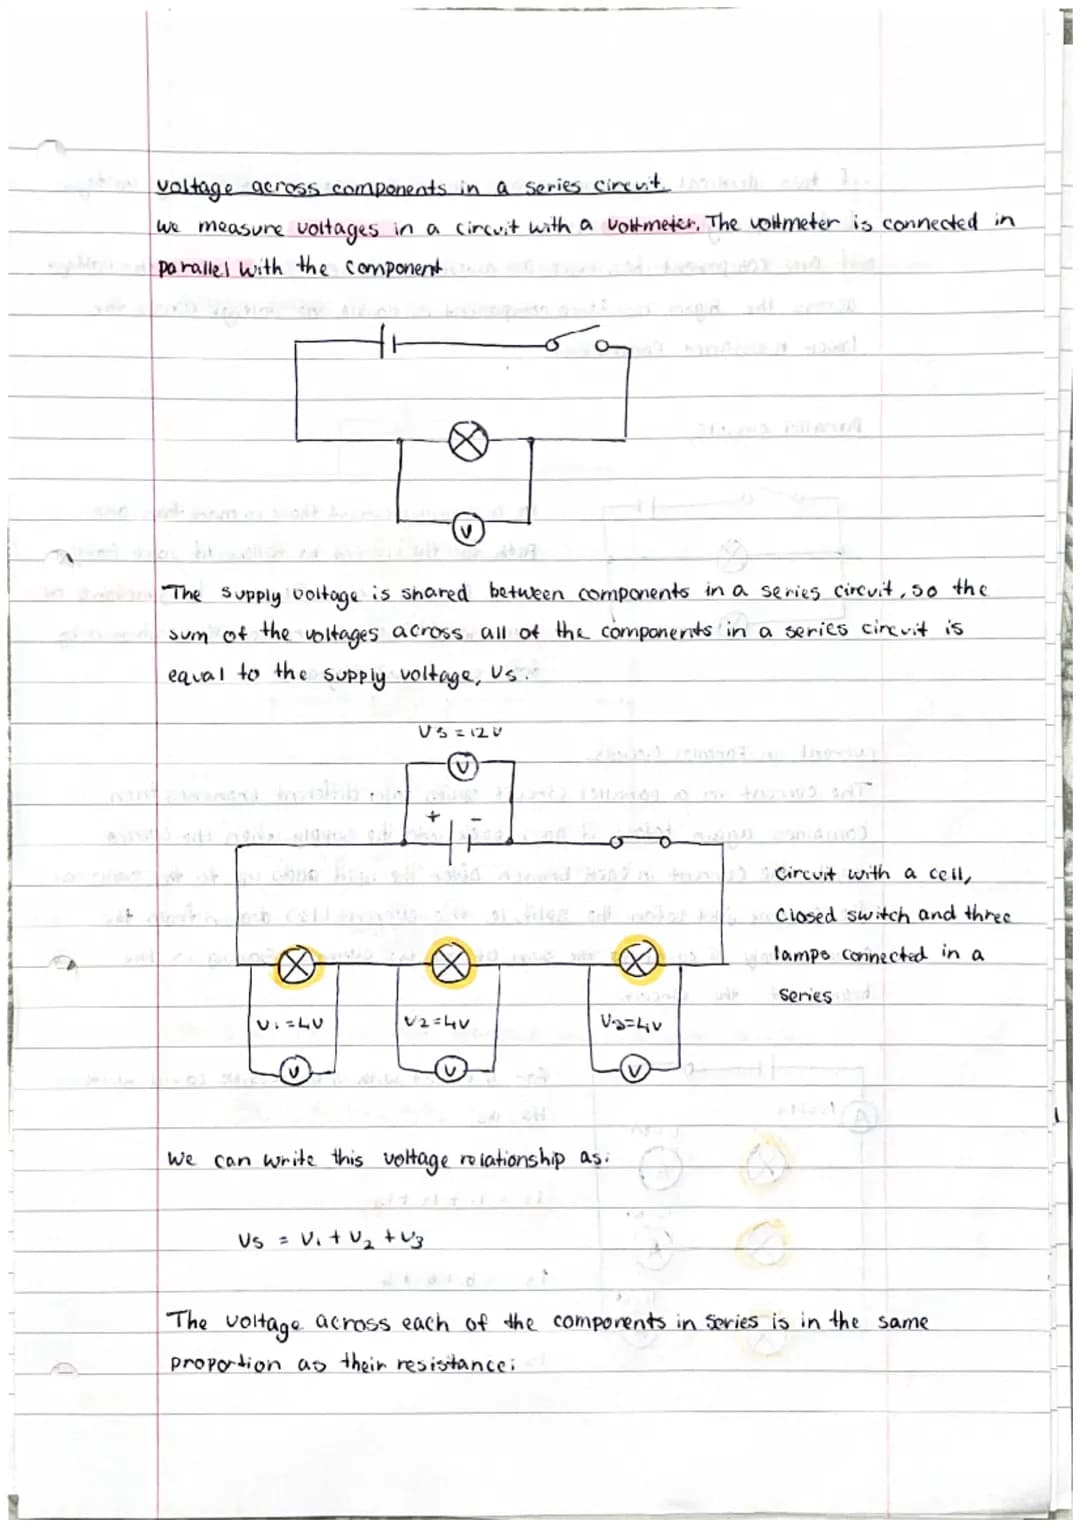 voltage across components in a series circuit
we measure voltages in a circuit with a voltmeter. The voltmeter is connected in
parallel with the component
V
The supply voltage is shared between components in a series circuit, so the
sum of the voltages across all of the components in a series circuit is
equal to the supply voltage, Vs.
Vs = 12V
V
+ -
Circuit with a cell,
Closed switch and three
lamps connected in a
series
V1 = 4V V2 = 4V V3 = 4V
V V V
we can write this voltage relationship as:
Vs = V1 + V2 + V3
The voltage across each of the components in series is in the same
proportion as their resistance: